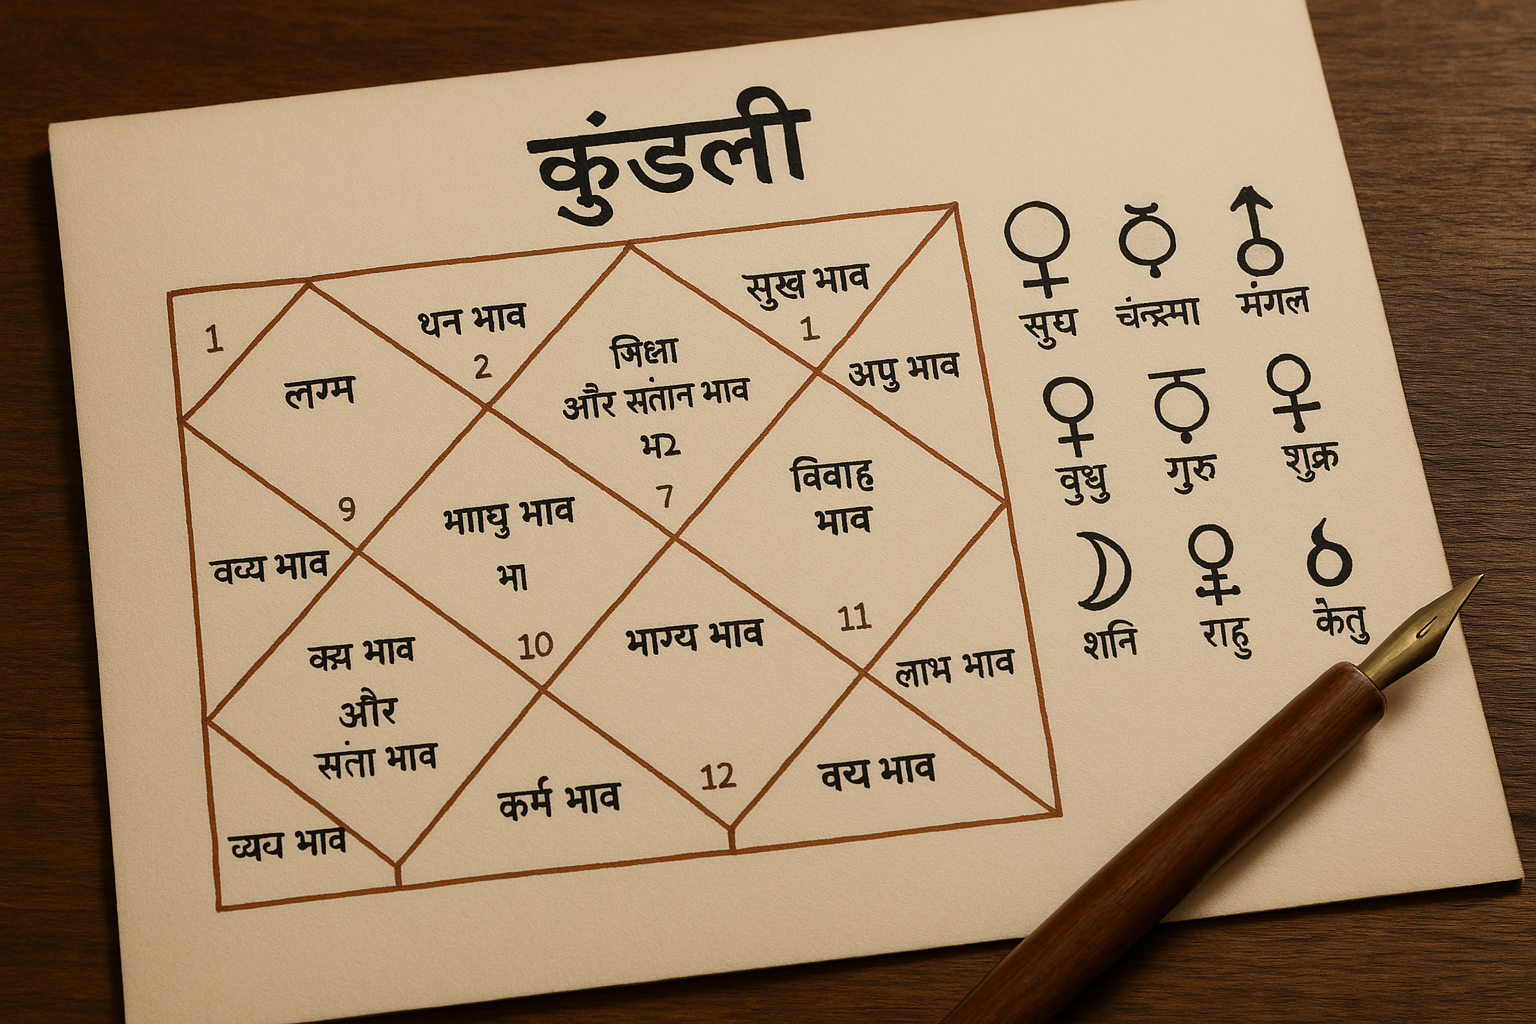 कुंडली
1
लग्म
थन भाव
2
और संतान भाव
भ2
7
सुख भाव
1
अपु भाव
विवाह
भाव
9
वय्य भाव
भााघु भाव
भा
10
भाग्य भाव
11
लाभ भाव
भाव
और
संता भाव
व्यव भाव
कर्म भाव
12
वय भाव
चंन्द्रमा
मंगल
वुधु
गुरु
शुक्र
शनि
राहु
केतु